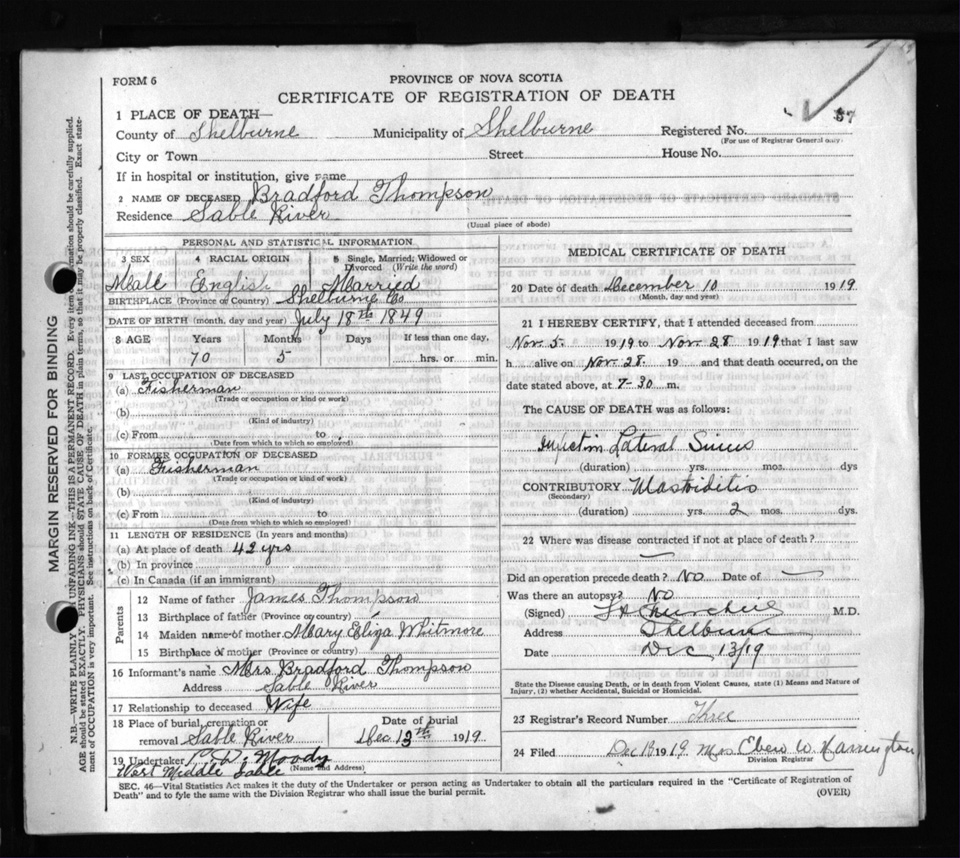 FORM 6
PROVINCE OF NOVA SCOTIA
CERTIFICATE OF REGISTRATION OF DEATH
1 PLACE OF DEATH—
County of Shelburne Municipality of Shelburne Registered No. 57
(For use of Registrar General only)
City or Town Street House No.
If in hospital or institution, give name
2 NAME OF DECEASED Bradford Thompson
Residence Sable River
(Usual place of abode)
PERSONAL AND STATISTICAL INFORMATION
3 SEX 4 RACIAL ORIGIN 5 Single, Married, Widowed or Divorced (Write the word)
Mall English Married
BIRTHPLACE (Province or Country) Shelburne Co
DATE OF BIRTH (month, day and year) July 18th 1849
8 AGE Years Months Days If less than one day,
70 5 hrs. or min.
9 LAST OCCUPATION OF DECEASED
(a) Fisherman
(Trade or occupation or kind of work)
(b)
(Kind of industry)
(c) From to
(Date from which to which employed)
10 FORMER OCCUPATION OF DECEASED
(a) Fisherman
(Trade or occupation or kind of work)
(b)
(Kind of industry)
(c) From to
(Date from which to which so employed)
11 LENGTH OF RESIDENCE (In years and months)
(a) At place of death 42 yrs
(b) In province
(c) In Canada (if an immigrant)
Parents
12 Name of father James Thompson
13 Birthplace of father (Province or country)
14 Maiden name of mother Mary Eliza Whitmore
15 Birthplace of mother (Province or country)
16 Informant's name Mrs Bradford Thompson
Address Sable River
17 Relationship to deceased Wife
18 Place of burial, cremation or removal Sable River
Date of burial Dec 13th 1919
19 Undertaker Moody
(Name and Address)
West Middle Sable
MEDICAL CERTIFICATE OF DEATH
20 Date of death December 10 1919
(Month, day and year)
21 I HEREBY CERTIFY, that I attended deceased from
Nov 5 1919 to Nov 28 1919 that I last saw
h alive on Nov 28. 19 and that death occurred, on the
date stated above, at 7-30 m.
The CAUSE OF DEATH was as follows:
Lateral Sinus
(duration) yrs. mos. dys
CONTRIBUTORY Mastoiditis
(Secondary)
(duration) yrs. 2 mos. dys.
22 Where was disease contracted if not at place of death?
—
Did an operation precede death? No Date of —
Was there an autopsy? No
(Signed) Churchill M.D.
Address Shelburne
Date Dec 13/19
State the Disease causing Death, or in death from Violent Causes, state (1) Means and Nature of
Injury, (2) whether Accidental, Suicidal or Homicidal.
23 Registrar's Record Number Three
24 Filed Dec 1919 Mrs Eben W. Harrington
Division Registrar
SEC. 46—Vital Statistics Act makes it the duty of the Undertaker or person acting as Undertaker to obtain all the particulars required in the "Certificate of Registration of
Death" and to fyle the same with the Division Registrar who shall issue the burial permit.
(OVER)
MARGIN RESERVED FOR BINDING
N.B.—WRITE PLAINLY UNFADING INK—THIS IS A PERMANENT RECORD. Every item information should be carefully supplied.
AGE should be stated EXACTLY. PHYSICIANS should STATE CAUSE OF DEATH in plain terms, so that it may be properly classified. Exact state-
ment of OCCUPATION is very important. See instructions on back of Certificate.